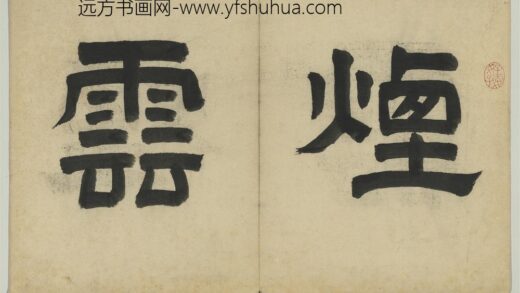 远方书画网-www.yfshuhua.com
煙
雲